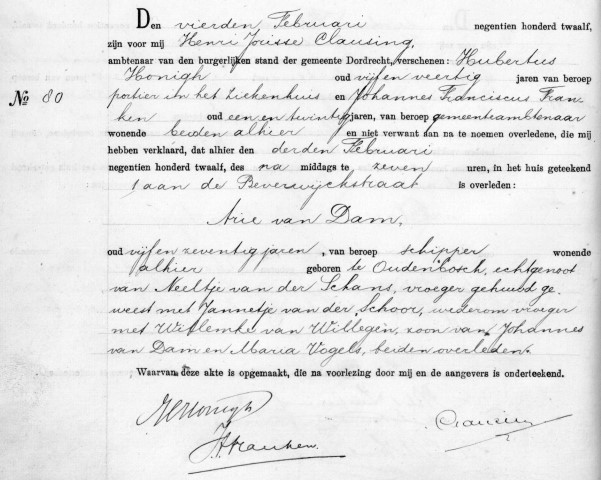 Den vierden Februari negentien honderd twaalf,
zijn voor mij Henri Jouisse Clausing,
ambtenaar van den burgerlijken stand der gemeente Dordrecht, verschenen: Hubertus
Honigh oud vijf en veertig jaren van beroep
No 80 portier in het Ziekenhuis en Johannes Franciscus Fran-
ken oud een en twintig jaren, van beroep gemeenteambtenaar
wonende beiden alhier en niet verwant aan na te noemen overledene, die mij
hebben verklaard, dat alhier den derden Februari
negentien honderd twaalf, des na middags te zeven uren, in het huis geteekend
1 aan de Beverwijckstraat is overleden:
Arie van Dam,
oud vijf en zeventig jaren, van beroep schipper wonende
alhier geboren te Oudenbosch, echtgenoot
van Neeltje van der Schans, vroeger gehuwd ge-
weest met Jannetje van der Schoor, wederom vroeger
met Willemke van Willegen, zoon van Johannes
van Dam en Maria Vogels, beiden overleden.
Waarvan deze akte is opgemaakt, die na voorlezing door mij en de aangevers is onderteekend.
HHonigh
Clausing
JFFranken.